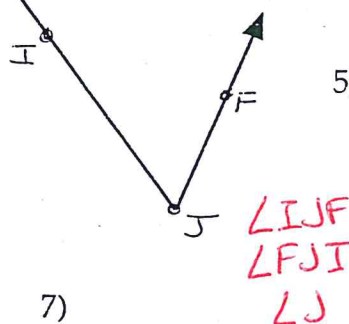 I
F
5
J
∠IJF
∠FJI
∠J
7)